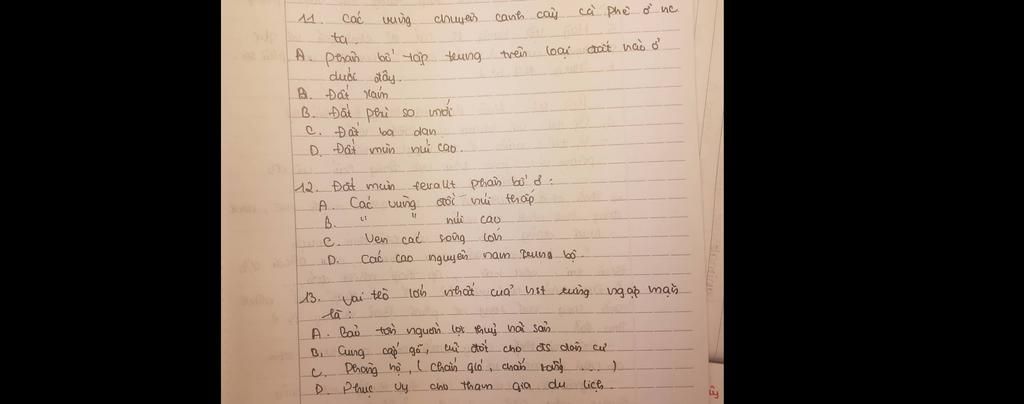 11. Các vùng chuyên canh cây cà phê ở nc
ta.
A. phân bố tập trung trên loại đất nào ở
dưới đây.
A. Đất xám
B. Đất phù sa mới
C. Đất ba dan
D. Đất mùn núi cao.
12. Đất mùn feralit phân bố ở:
A. Các vùng đồi núi thấp
B. " " núi cao
C. Ven các sông lớn
D. Các cao nguyên nam trung bộ.
13. Vai trò lớn nhất của hst rừng ngập mặn
là:
A. Bảo tồn nguồn lợi thuỷ hải sản
B. Cung cấp gỗ, củi đốt cho đs dân cư
C. Phòng hộ, (chắn gió, chắn sóng ...)
D. Phục vụ cho tham gia du lịch.